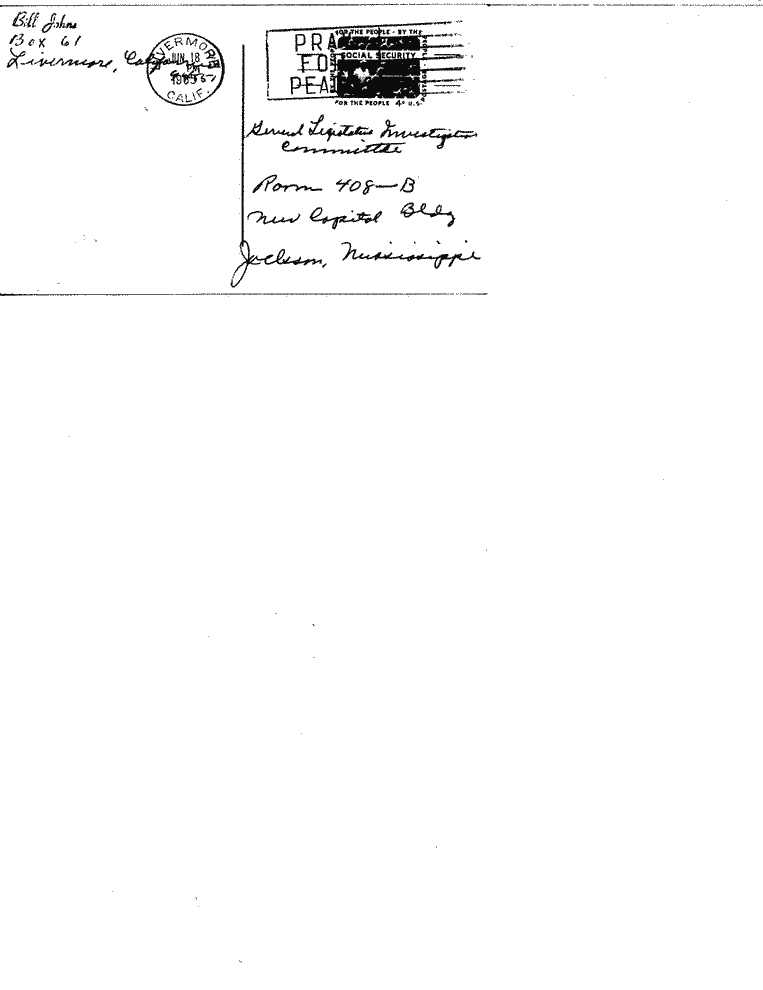 Bill Johns
Box 61
Livermore, California
LIVERMORE
JUN 18
PM
1965
CALIF.
PRA
FO
PEA
FOR THE PEOPLE - BY THE
SOCIAL SECURITY
FOR THE PEOPLE 4¢ U.S.
General Legislative Investigation
Committee
Room 408-B
New Capitol Bldg
Jackson, Mississippi